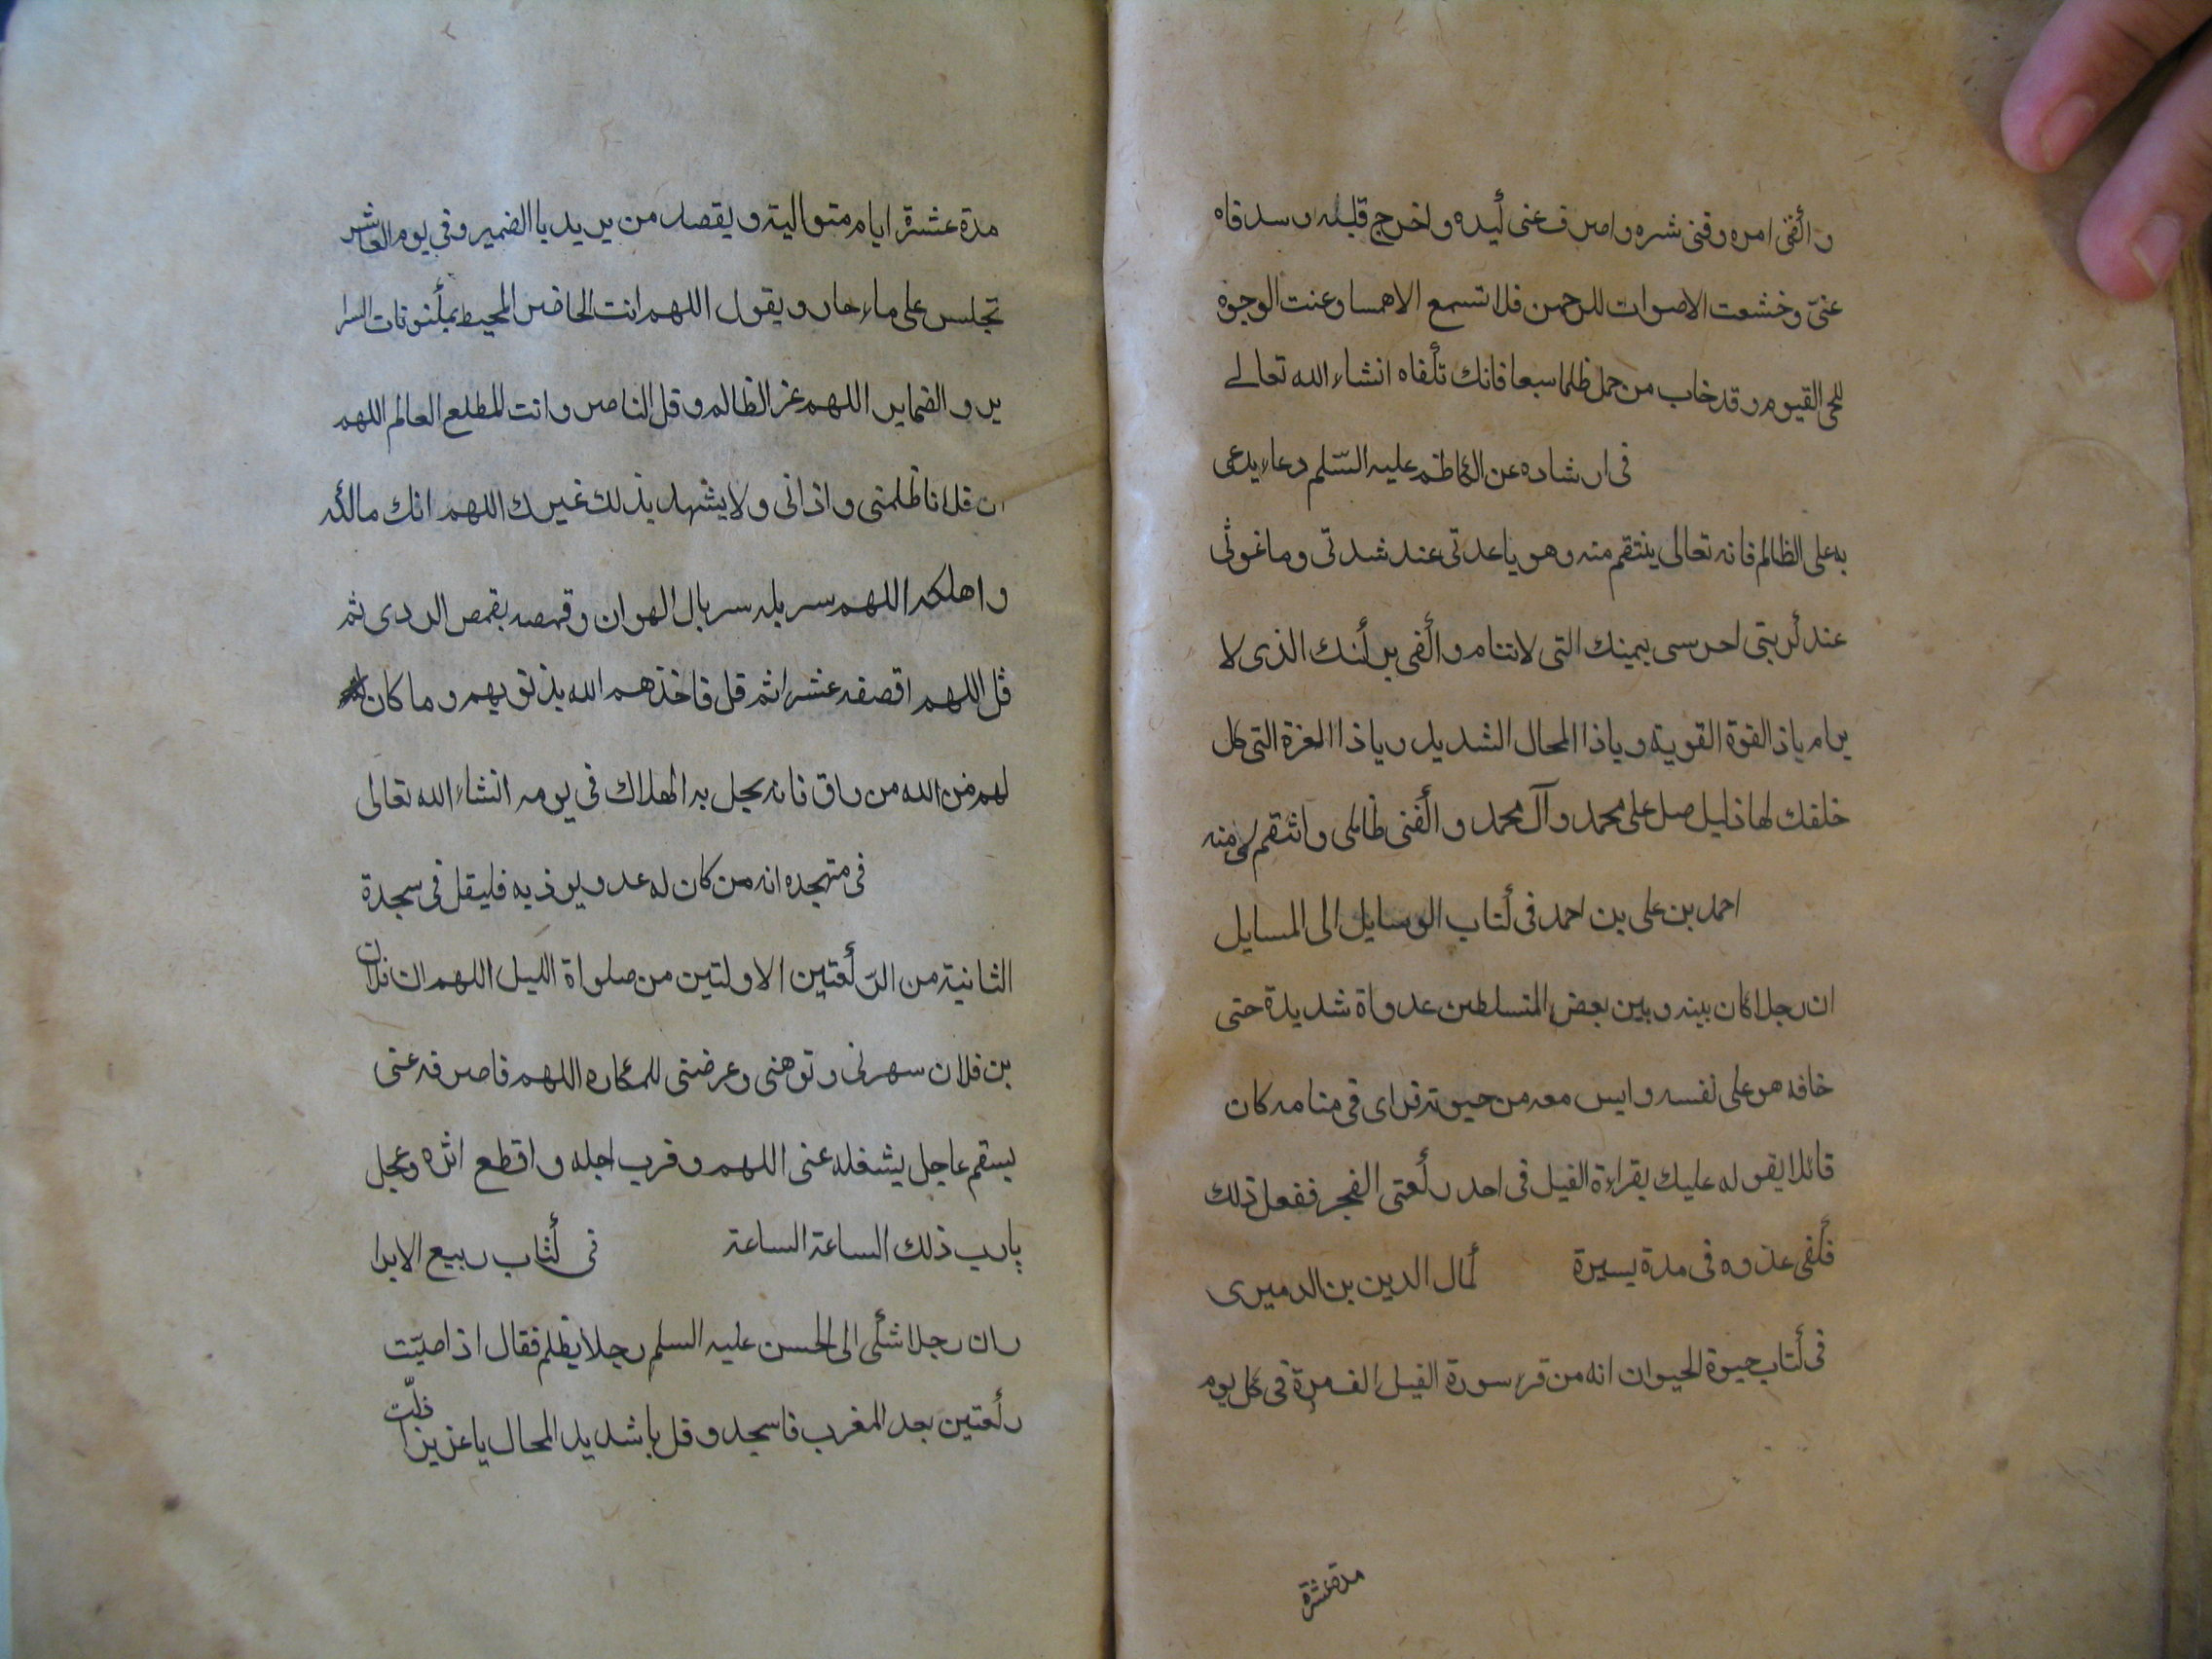 و اكفنى امره وقنى شره واصرف عنى كيده واخرج قلبه وسد فاه
عنّى وخشعت الاصوات للرحمن فلا تسمع الا همسا وعنت الوجوه
للحى القيوم وقد خاب من حمل ظلما سبعا فانك تكفاه انشاء الله تعالى
فى ارشاده عن الكاظم عليه السّلم دعاء يدعى
به على الظالم فانه تعالى ينتقم منه وهو يا عدتى عند شدتى وما غوثى
عند كربتى احرسى بعينك التى لا تنام واكفى بركنك الذى لا
يرام ياذ القوة القوية وياذا المحال الشديد وياذا العزة التى كل
خلقك لها ذليل صل على محمد وآل محمد واكفنى ظالمى وانتقم لى منه
احمد بن على بن احمد فى كتاب الوسايل الى المسايل
ان رجلا كان بينه وبين بعض المتسلطين عدواة شديدة حتى
خافه هو على نفسه وايس معه من حيوته فراى فى منامه كان
قائلا يقوله عليك بقراءة الفيل فى احد ركعتى الفجر ففعل ذلك
فكفى عدوه فى مدة يسيرة كمال الدين بن الدميرى
فى كتاب حيوة الحيوان انه من قرء سورة الفيل الف مرة فى كل يوم
مدة عشرة
مدة عشرة ايام متوالية ويقصد من يريد باالضمير وفى يوم العاشر
تجلس على ماء جار ويقول اللهم انت الحاضر المحيط بمكنونات السرا
ير والضماير اللهم عز الظالم وقل الناصر وانت المطلع العالم اللهم
ان فلانا ظلمنى واذانى ولا يشهد بذلك غيرك اللهم انك مالكه
واهلكه اللهم سربله سربال الهوان وقمصه بقمص الردى ثم
قل اللهم اقصفه عشرا ثم قل فاخذهم الله بذنوبهم وما كان
لهم من الله من واق فانه يحل به الهلاك فى يومه انشاء الله تعالى
فى متهجده انه من كان له عدو يوذيه فليقل فى سجدة
الثانية من الركعتين الاولتين من صلواة الليل اللهم ان فلان
بن فلان سهرنى ونوهنى وعرضتى للمكاره اللهم فاصرفه عنى
بسقم عاجل يشغله عنى اللهم وقرب اجله واقطع اثره وعجل
يارب ذلك الساعة الساعة فى كتاب ربيع الابرا
ر ان رجلا شكى الى الحسن عليه السلم رجلا يظلم فقال اذا صليّت
ركعتين بعد المغرب فاسجد وقل يا شديد المحال يا عزيز اذللّت